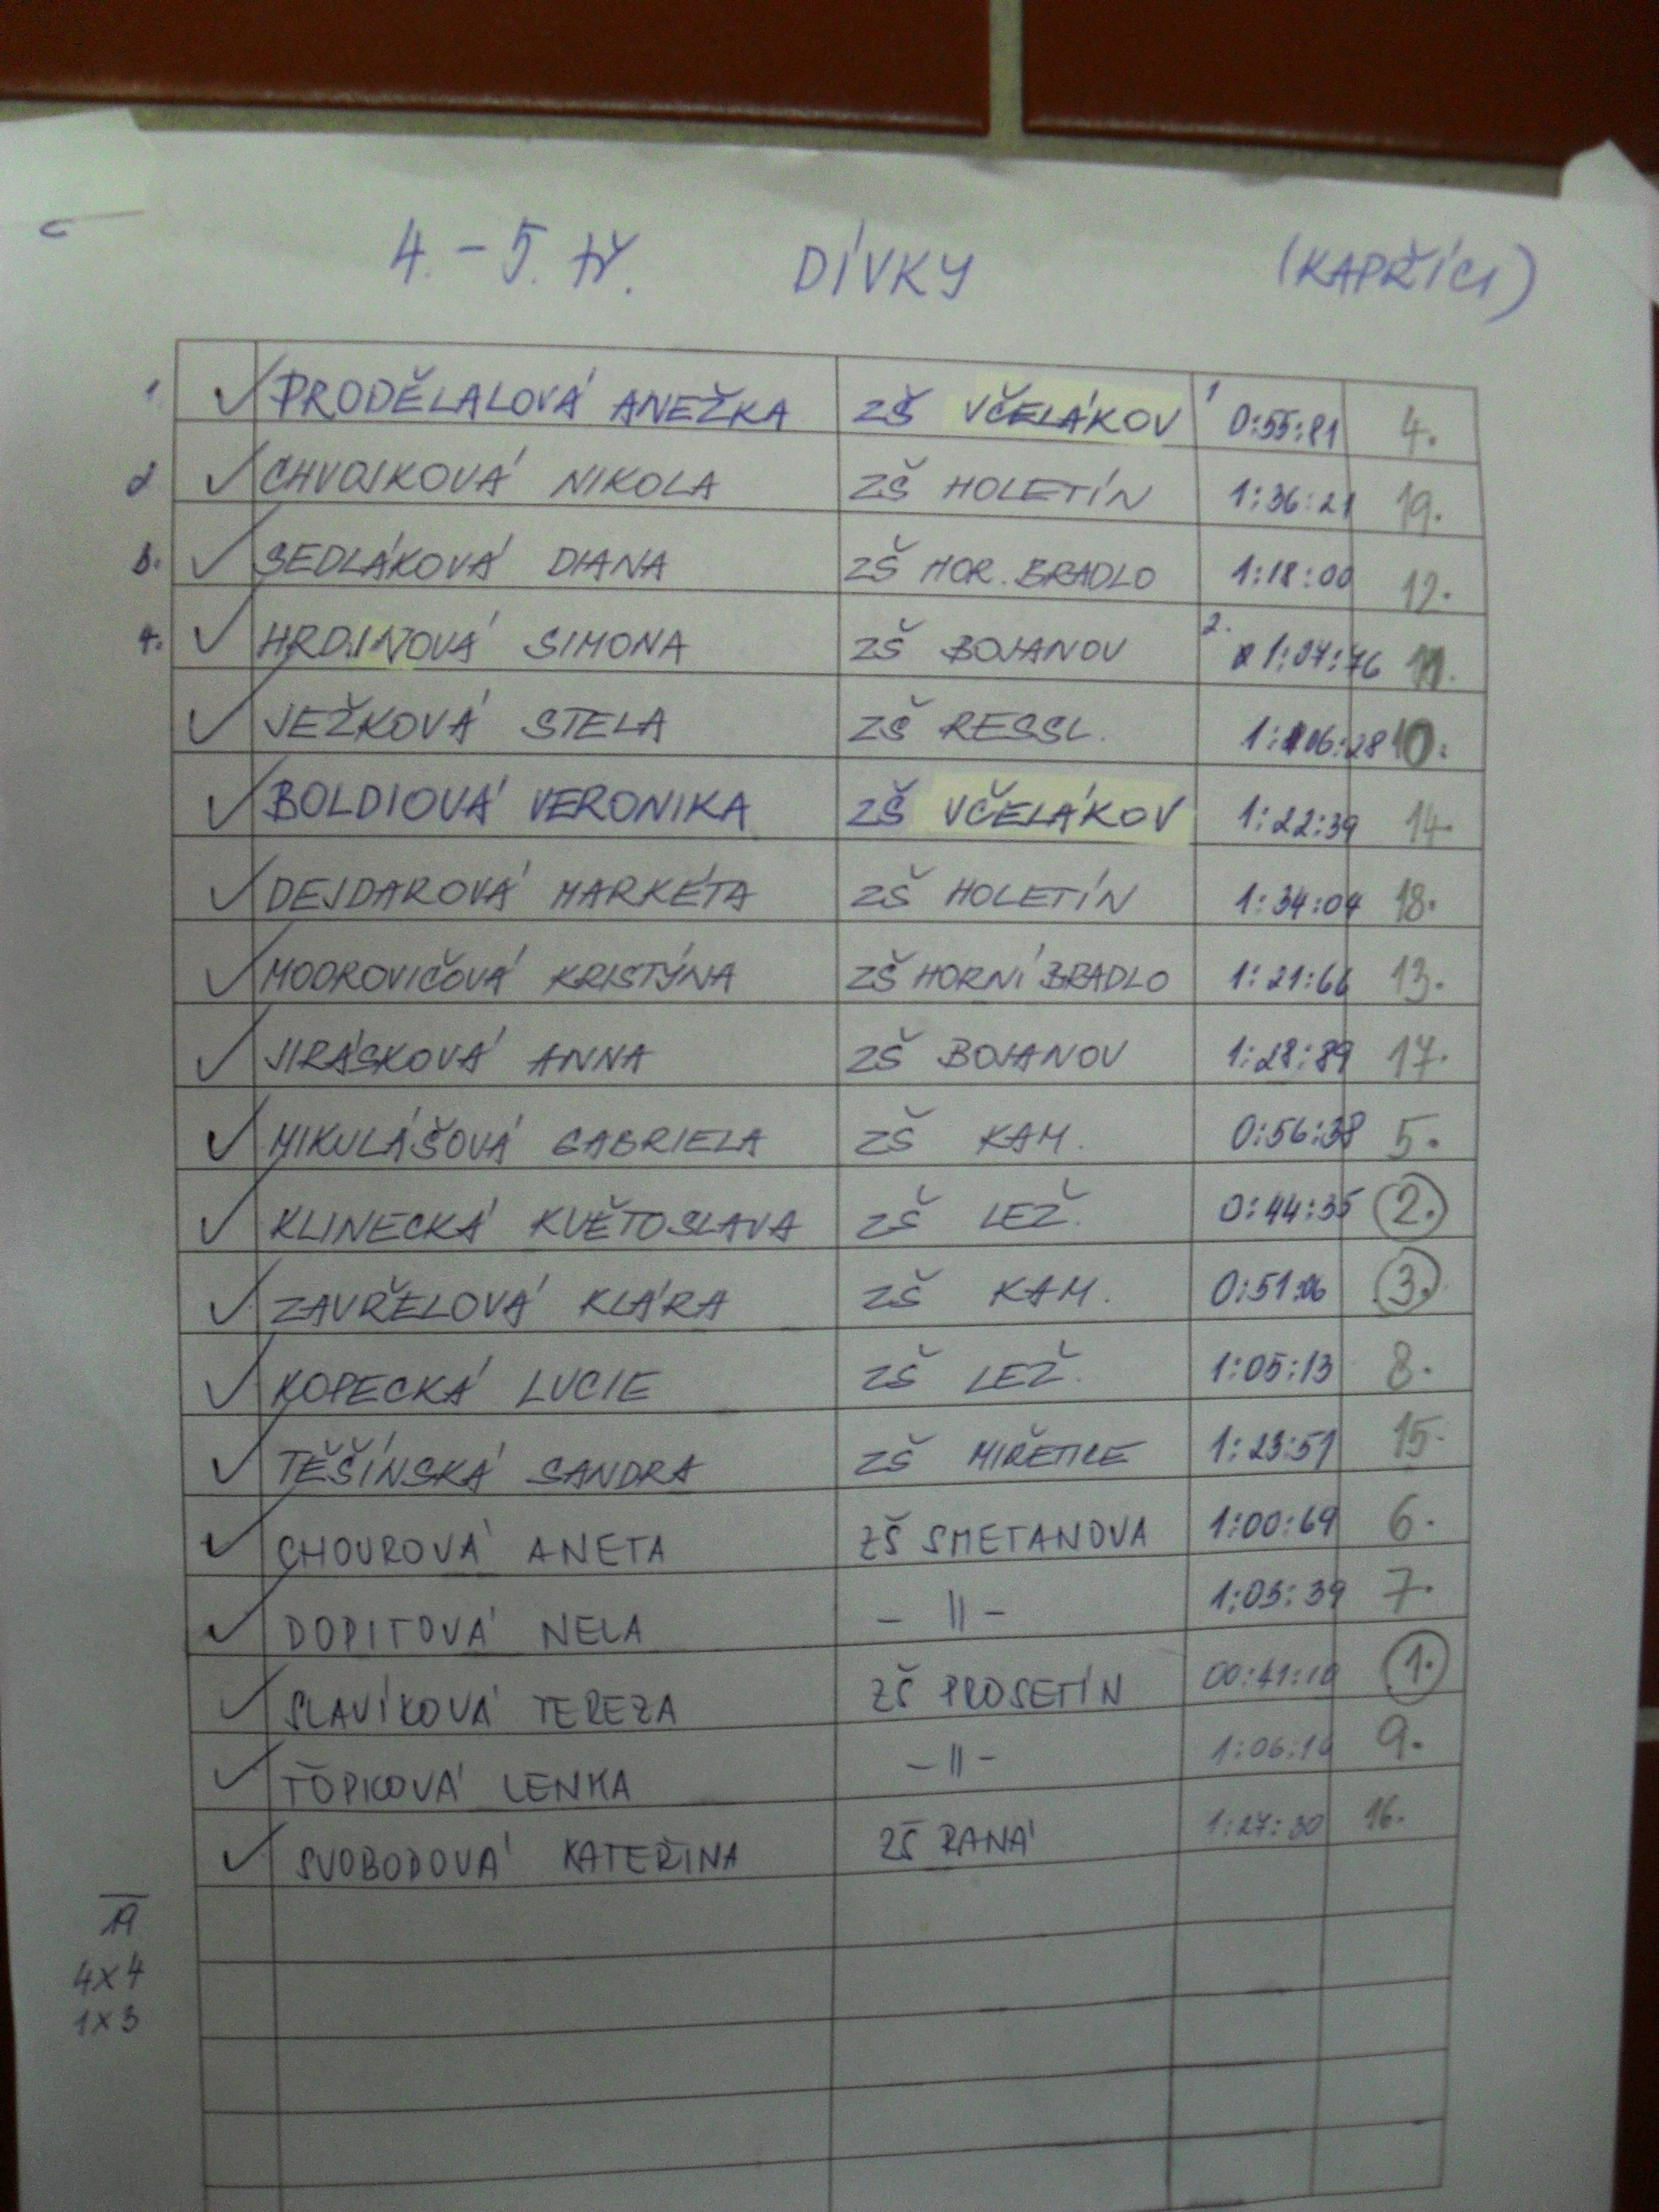 4.-5. tř. DÍVKY (KAPŘÍCI)
1. ✓ PRODĚLALOVÁ ANEŽKA ZŠ VČELÁKOV 1 0:55:81 4.
2 ✓ CHVOJKOVÁ NIKOLA ZŠ HOLETÍN 1:36:21 19.
3. ✓ SEDLÁKOVÁ DIANA ZŠ HOR. BRADLO 1:18:00 12.
4. ✓ HRDINOVÁ SIMONA ZŠ BOJANOV 2. 1:07:76 11.
✓ JEŽKOVÁ STELA ZŠ RESSL. 1:06:28 10.
✓ BOLDIOVÁ VERONIKA ZŠ VČELÁKOV 1:22:39 14.
✓ DEJDAROVÁ MARKÉTA ZŠ HOLETÍN 1:34:04 18.
✓ MODROVIČOVÁ KRISTÝNA ZŠ HORNÍ BRADLO 1:21:66 13.
✓ JIRÁSKOVÁ ANNA ZŠ BOJANOV 1:28:89 17.
✓ MIKULÁŠOVÁ GABRIELA ZŠ KAM. 0:56:38 5.
✓ KLINECKÁ KVĚTOSLAVA ZŠ LEŽ. 0:44:35 2.
✓ ZAVŘELOVÁ KLÁRA ZŠ KAM. 0:51:06 3.
✓ KOPECKÁ LUCIE ZŠ LEŽ. 1:05:13 8.
✓ TĚŠÍNSKÁ SANDRA ZŠ MIŘETICE 1:23:51 15.
✓ CHOUROVÁ ANETA ZŠ SMETANOVA 1:00:69 6.
✓ DOPITOVÁ NELA - || - 1:03:39 7.
✓ SLAVÍKOVÁ TEREZA ZŠ PROSETÍN 00:41:10 1.
✓ TOPKOVÁ LENKA - || - 9.
✓ SVOBODOVÁ KATEŘINA ZŠ RANÁ 1:27:30 16.
19
4x4
1x3